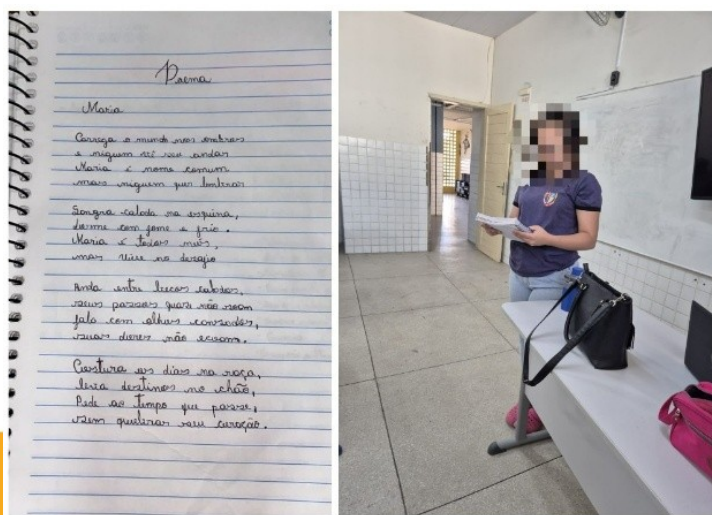 Poema
Maria
Carrega o mundo nos ombros
e niguem vê seu andar
Maria é nome comum
mais niguem quer lembrar
Sangra calada na esquina,
dorme com fome e frio.
Maria é todas nós,
mas vive no
Anda entre becos calados,
seus passos quase não soam
fala com olhos cansados,
suas dores não ecoam.
Costura os dias na roça,
leva destinos no chão,
Pede ao tempo que passe,
sem quebrar seu coração.